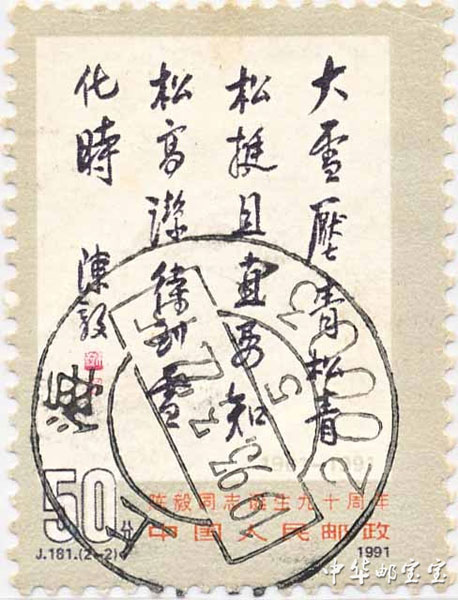 大雪壓青松青
松挺且直要知
松高潔待到雪
化時 陳毅
1901-1991
50分
陈毅同志诞生九十周年
中国人民邮政
J.181.(2-2)
1991
中华邮宝宝